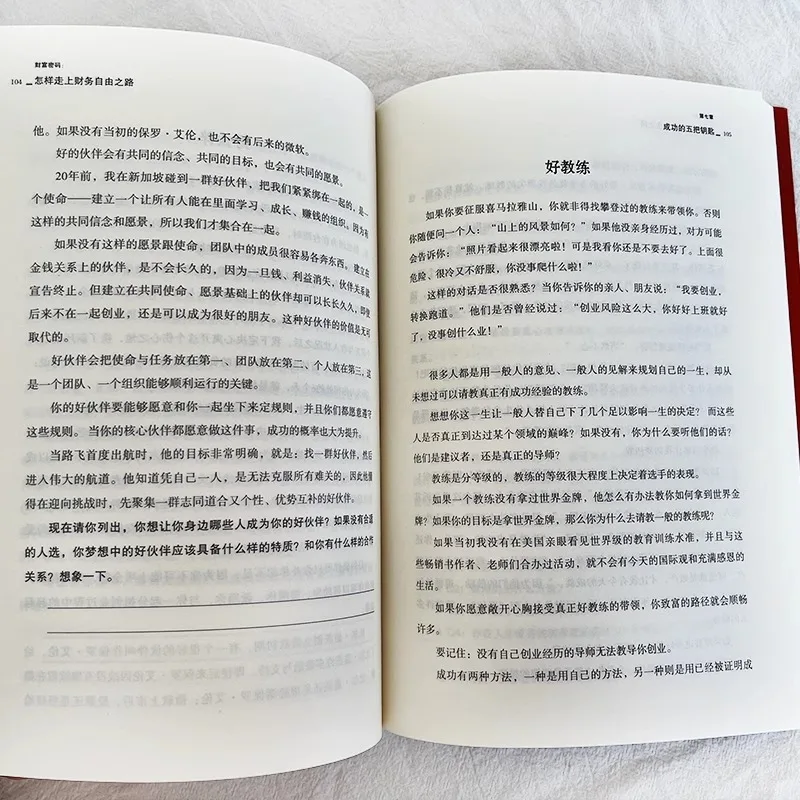 财富密码:
104 怎样走上财务自由之路
他。如果没有当初的保罗·艾伦，也不会有后来的微软。
好的伙伴会有共同的信念、共同的目标，也会有共同的愿景。
20年前，我在新加坡碰到一群好伙伴，把我们紧紧绑在一起的，是一
个使命——建立一个让所有人能在里面学习、成长、赚钱的组织。因为有
这样的共同信念和愿景，所以我们才集合在一起。
如果没有这样的愿景跟使命，团队中的成员很容易各奔东西。建立在
金钱关系上的伙伴，是不会长久的，因为一旦钱、利益消失，伙伴关系就
宣告终止。但建立在共同使命、愿景基础上的伙伴却可以长长久久，即使
后来不在一起创业，还是可以成为很好的朋友。这种好伙伴的价值是无可
取代的。
好伙伴会把使命与任务放在第一、团队放在第二、个人放在第三，这
是一个团队、一个组织能够顺利运行的关键。
你的好伙伴要能够愿意和你一起坐下来定规则，并且你们都愿意遵守
这些规则。当你的核心伙伴都愿意做这件事，成功的概率也大为提升。
当路飞首度出航时，他的目标非常明确，就是：找一群好伙伴，然后
进入伟大的航道。他知道凭自己一人，是无法克服所有难关的，因此他懂
得在迎向挑战时，先聚集一群志同道合又个性、优势互补的好伙伴。
现在请你列出，你想让你身边哪些人成为你的好伙伴？如果没有合适
的人选，你梦想中的好伙伴应该具备什么样的特质？和你有什么样的合作
关系？想象一下。
第七章
成功的五把钥匙 105
好教练
如果你要征服喜马拉雅山，你就非得找攀登过的教练来带领你。否则
你随便问一个人：“山上的风景如何？”如果他没亲身经历过，对方可能
会告诉你：“照片看起来很漂亮啦！可是我看你还是不要去好了。上面很
危险、很冷又不舒服，你没事爬什么啦！”
这样的对话是否很熟悉？当你告诉你的亲人、朋友说：“我要创业，
转换跑道。”他们是否曾经说过：“创业风险这么大，你好好上班就好
了，没事创什么业！”
很多人都是用一般人的意见、一般人的见解来规划自己的一生，却从
未想过可以请教真正有成功经验的教练。
想想你这一生让一般人替自己下了几个足以影响一生的决定？而这些
人是否真正到达过某个领域的巅峰？如果没有，你为什么要听他们的话？
他们是建议者，还是真正的导师？
教练是分等级的，教练的等级很大程度上决定着选手的表现。
如果一个教练没有拿过世界金牌，他怎么有办法教你如何拿到世界金
牌？如果你的目标是拿世界金牌，那么你为什么去请教一般的教练呢？
如果当初我没有在美国亲眼看见世界级的教育训练水准，并且与这
些畅销书作者、老师们合办过活动，就不会有今天的国际观和充满感恩的
生活。
如果你愿意敞开心胸接受真正好教练的带领，你致富的路径就会顺畅
许多。
要记住：没有自己创业经历的导师无法教导你创业。
成功有两种方法，一种是用自己的方法，另一种则是用已经被证明成